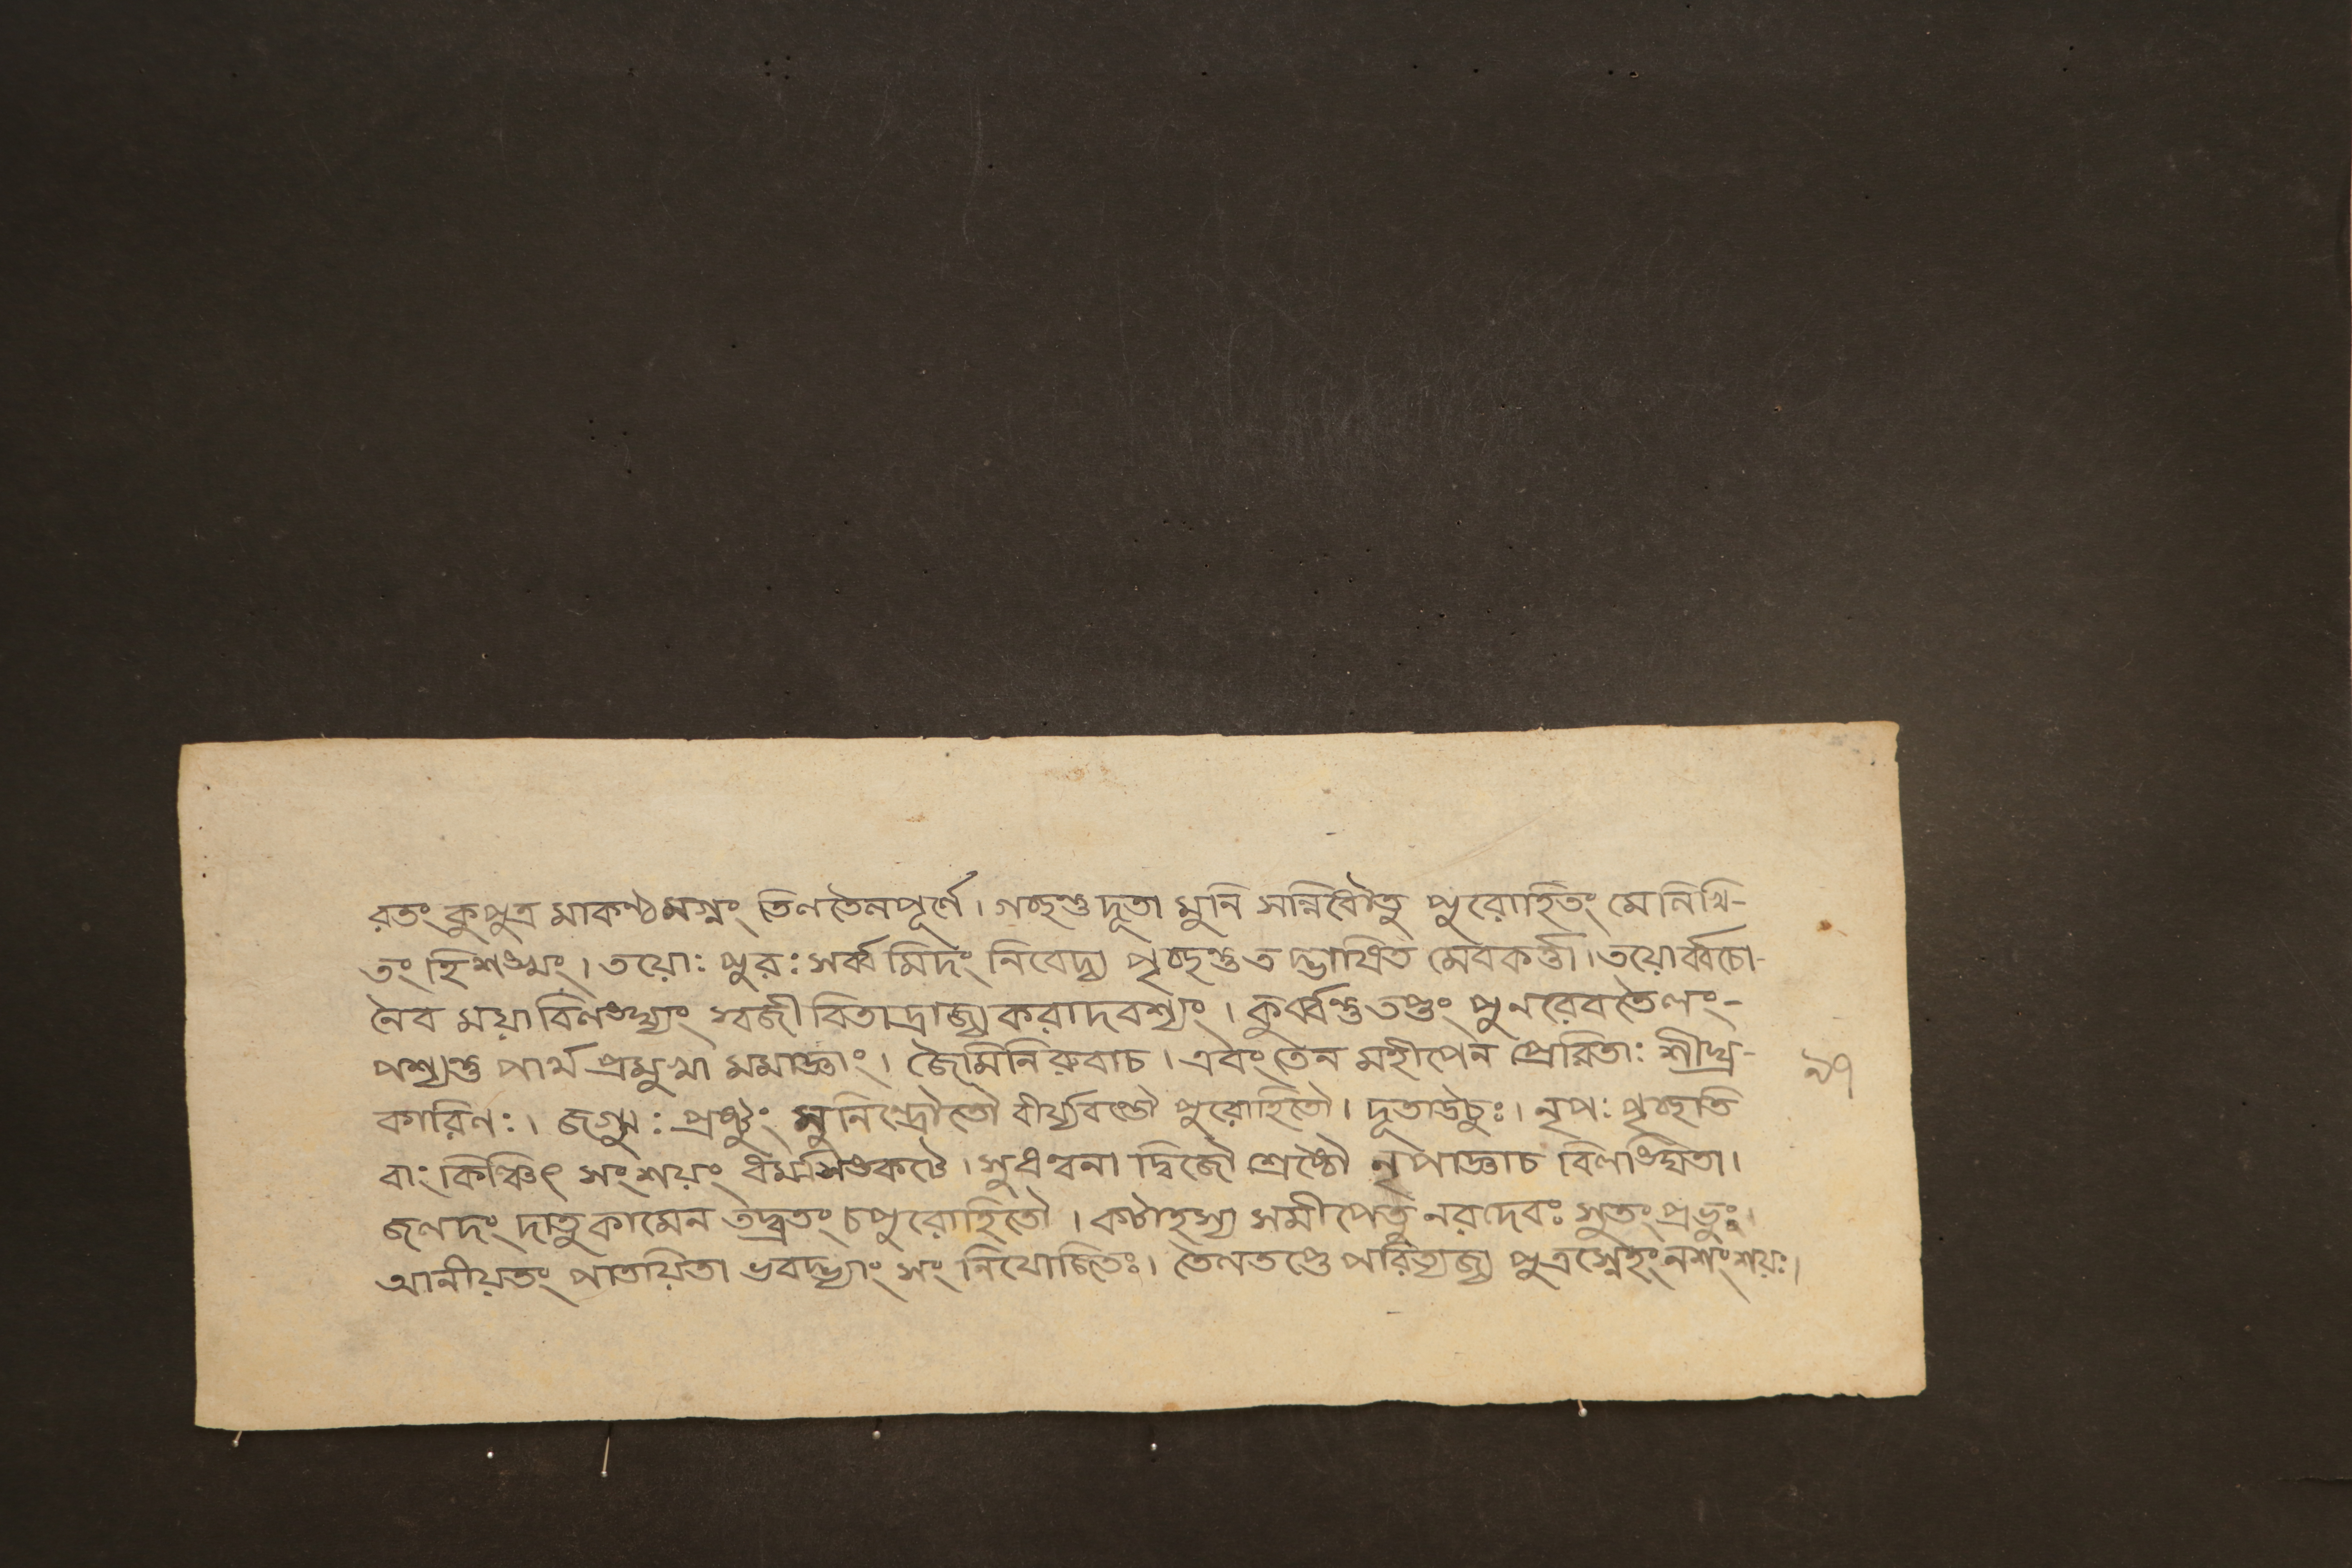 রতং কুপুত্র মাকণ্ঠমগ্নং তিলতৈলপূর্ণে। গচ্ছন্তু দূতা মুনি সন্নিধৌতু পুরোহিতং মে লিখি-
তং হিশঙ্খং। তয়োঃ পুরঃ সর্ব্ব মিদং নিবেদ্য পৃচ্ছন্তু ত দ্ভাষিত মেবকর্ত্তা। তয়োর্ব্বচো-
নৈব ময়া বিলঙ্ঘ্যং স্বজীবিতাদ্রাজ্যকরাদবশ্যং। কুর্ব্বন্তু তপ্তং পুনরেবতৈলং-
পশ্যন্তু পার্থ প্রমুখা মমাজ্ঞাং। জৈমিনিরুবাচ। এবং তেন মহীপেন প্রেরিতাঃ শীঘ্র-
৯৭
কারিণঃ। জগ্মুঃ প্রষ্টুং মুনিন্দ্রৌতৌ বীর্য্যবন্তৌ পুরোহিতৌ। দূতাউচুঃ। নৃপঃ পৃচ্ছতি
বাং কিঞ্চিৎ সংশয়ং ধর্ম্মসঙ্কটে। সুধন্বনা দ্বিজৌ শ্রেষ্ঠৌ নৃপাজ্ঞাচ বিলঙ্ঘিতা।
জলদং দাতুকামেন তদ্ব্রতং চপুরোহিতৌ। কটাহস্য সমীপেতু নরদেবঃ সুতং প্রভুঃ।
আনীয়তং পাতয়িতা ভবদ্ভ্যাং সং নিযোজিতঃ। তৈলতপ্তে পরিত্যজ্য পুত্রস্নেহং নশংশয়ঃ।